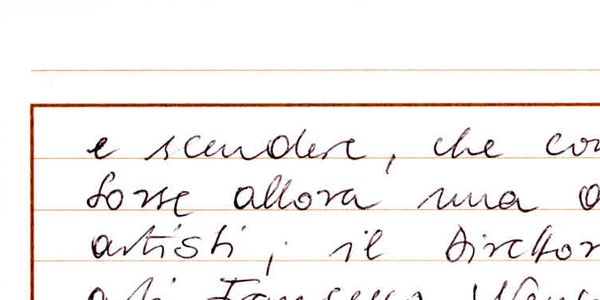 e scendere, che co
forse allora una
artisti, il diretto
Francesco